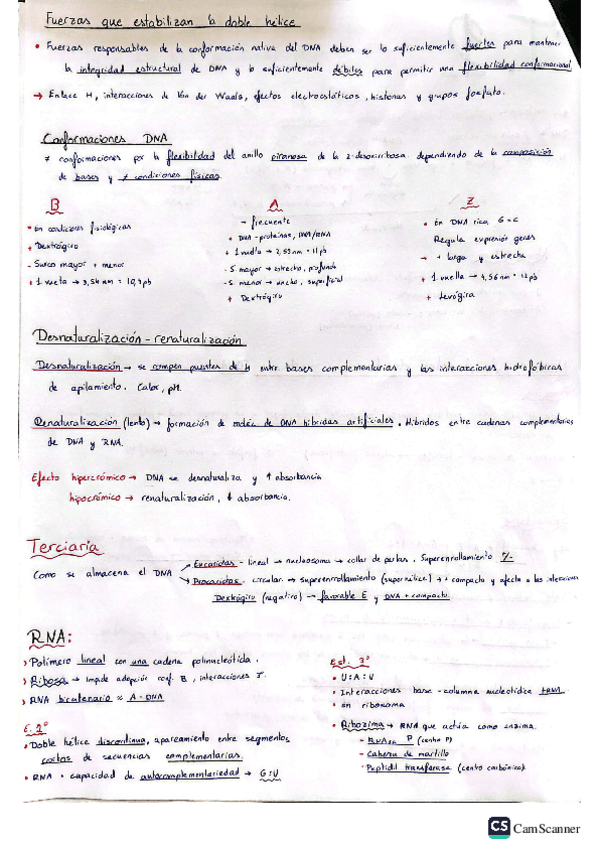 Fuerzas que estabilizan la doble hélice
• Fuerzas responsables de la conformación nativa del DNA deben ser lo suficientemente fuertes para mantener
la integridad estructural de DNA y lo suficientemente débiles para permitir una flexibilidad conformacional
→ Enlace H, interacciones de Van der Waals, efectos electrostáticos, histonas y grupos fosfato.
Conformaciones DNA
≠ conformaciones por la flexibilidad del anillo piranosa de la 2-desoxirribosa dependiendo de la composición
de bases y ≠ condiciones físicas
B
• En condiciones fisiológicas
+ Dextrógiro
- Surco mayor + menor
+ 1 vuelta → 3,54 nm = 10,4 pb
A
- frecuente
• DNA-proteínas, DNA/RNA
+ 1 vuelta → 2,53 nm = 11 pb
- S. mayor → estrecho, profundo
- S. menor → ancho, superficial
+ Dextrógiro
Z
• En DNA rica G=C
Regula expresión genes
→ + larga y estrecha
+ 1 vuelta → 4,56 nm = 12 pb
+ Levógira
Desnaturalización - renaturalización
Desnaturalización → se rompen puentes de H entre bases complementarias y las interacciones hidrofóbicas
de apilamiento. Calor, pH.
Renaturalización (lento) → formación de moléc de DNA híbridas artificiales. Híbridos entre cadenas complementarias
de DNA y RNA.
Efecto hipercrómico → DNA se desnaturaliza y ↑ absorbancia
hipocrómico → renaturalización, ↓ absorbancia.
Terciaria
Como se almacena el DNA
Eucariotas - lineal → nucleosoma → collar de perlas. Superenrollamiento
Procariotas - circular → superenrollamiento (superhélice) → + compacto y afecta a las interacciones
Dextrógiro (negativo) → favorable E y DNA + compacto
RNA:
› Polímero lineal con una cadena polinucleótida.
› Ribosa → Impide adopción conf. B, interacciones
› RNA bicatenario ≈ A-DNA
E. 2º
• Doble hélice discontinua, apareamiento entre segmentos
cortos de secuencias complementarias.
• RNA • capacidad de autocomplementariedad → G:U
Est. 3º
• U:A:U
• Interacciones base-columna nucleotídica
• En ribosoma
• Ribozima → RNA que actúa como enzima.
- P (centro P)
- Cabeza de martillo
- Peptidil transferasa
CS CamScanner